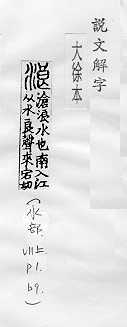 說文解字
大徐本
滄浪水也南入江
从水良聲來宕切
(水部.
p1.
b9.)